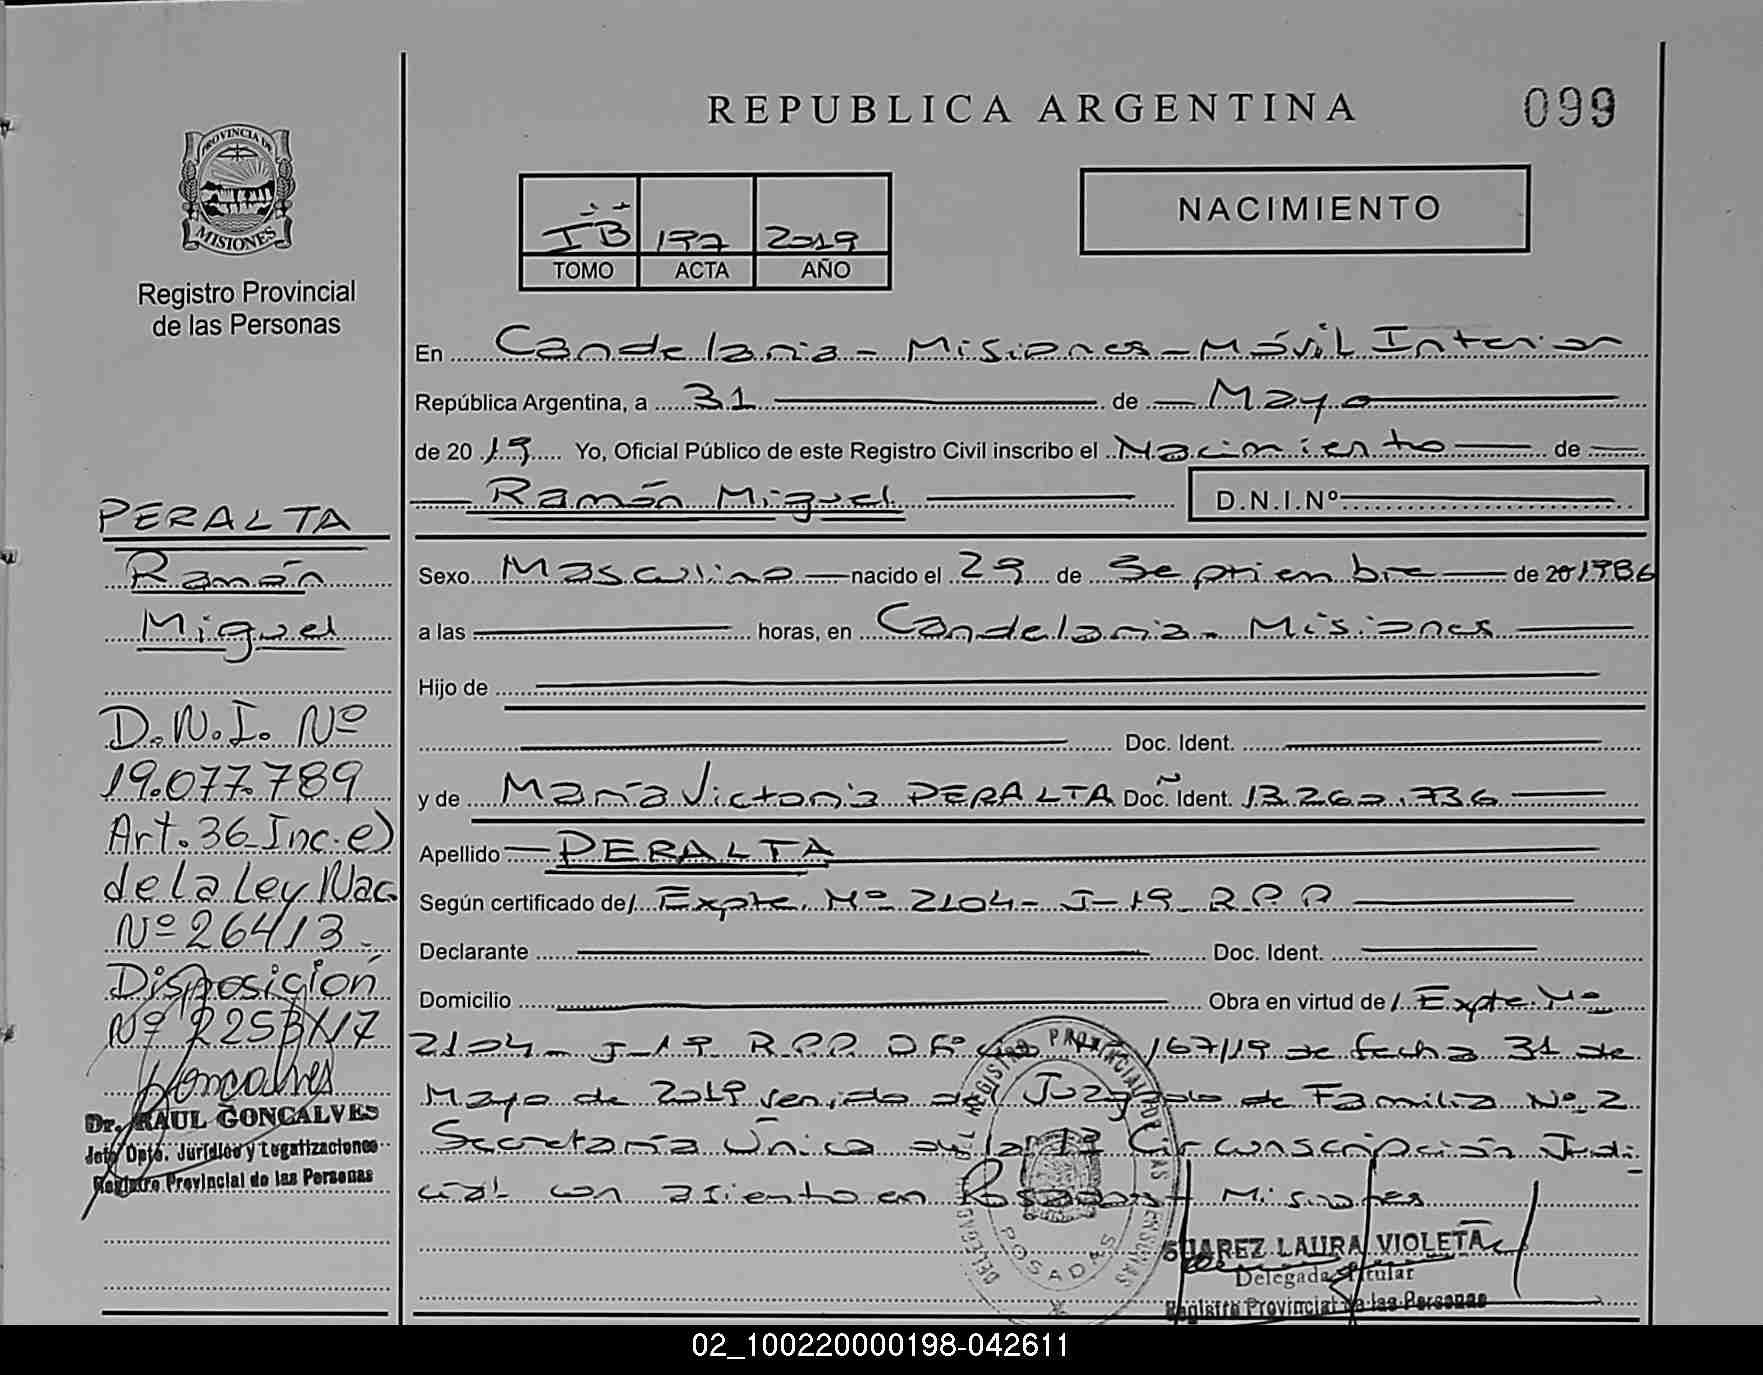 REPUBLICA ARGENTINA
099
PROVINCIA DE
MISIONES
Registro Provincial
de las Personas
NACIMIENTO
IB 197 2019
TOMO ACTA AÑO
En Candelaria - Misiones - Móvil Interior
República Argentina, a 31 de Mayo
de 2019 Yo, Oficial Público de este Registro Civil inscribo el Nacimiento de
Ramón Miguel D.N.I.Nº
Sexo Masculino nacido el 29 de Septiembre de 20 1986
a las horas, en Candelaria - Misiones
Hijo de
Doc. Ident.
y de María Victoria PERALTA Doc. Ident. 13.260.736
Apellido PERALTA
Según certificado de/ Expte. Nº 2104 - J-19 - R.P.P
Declarante Doc. Ident.
Domicilio Obra en virtud de/ Expte. Nº
2104 - J-19 R.P.P Of° 167/19 de fecha 31 de
Mayo de 2019 venido del Juzgado de Familia Nº 2
Secretaría Única de la 1ª Circunscripción Judi
cial con asiento en Posadas Misiones
PERALTA
Ramón
Miguel
D.N.I. Nº
19.077.789
Art. 36 Inc. e)
de la Ley Nac.
Nº 26413.
Disposición
Nº
Goncalves
Dr. RAUL GONCALVES
Jefe Dpto. Jurídico y Legalizaciones
Registro Provincial de las Personas
REGISTRO PROVINCIAL DE LAS PERSONAS
POSADAS
SUAREZ LAURA VIOLETA
Delegada Titular
Registro Provincial de las Personas
02_100220000198-042611